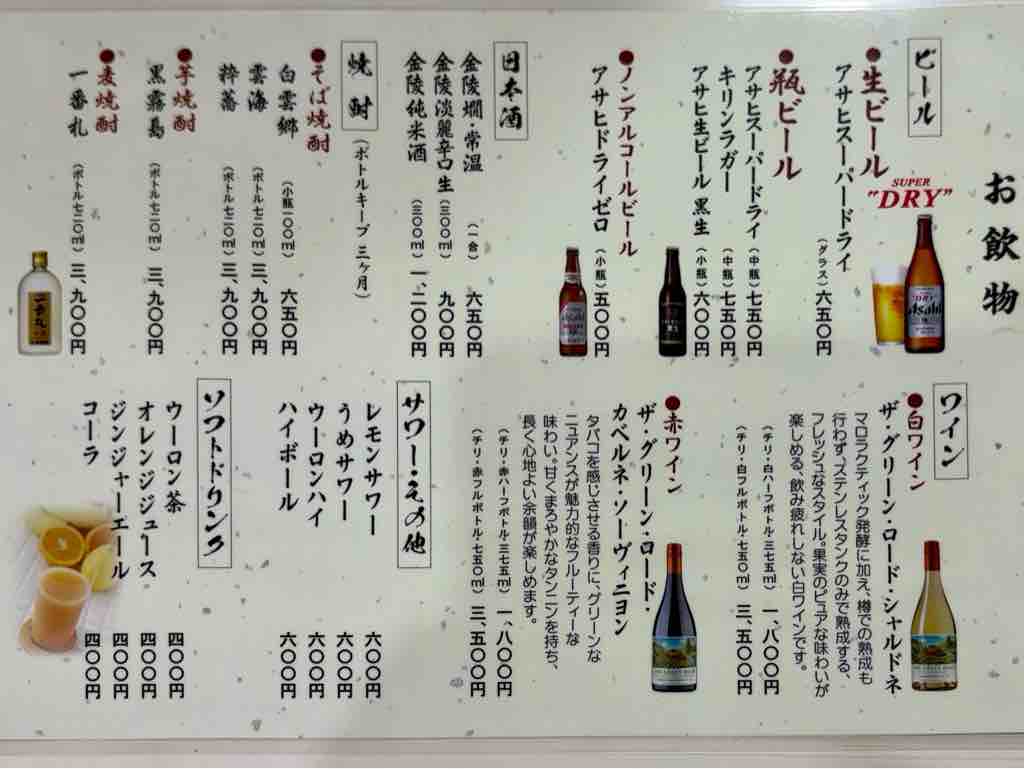 お飲物
ビール
●生ビール
アサヒスーパードライ(グラス)六五〇円
SUPER
"DRY"
●瓶ビール
アサヒスーパードライ(中瓶)七五〇円
キリンラガー(中瓶)七五〇円
アサヒ生ビール黒生(小瓶)六〇〇円
●ノンアルコールビール
アサヒドライゼロ(小瓶)五〇〇円
日本酒
金陵燗・常温(一合)六五〇円
金陵淡麗辛口生(三〇〇㎖)九〇〇円
金陵純米酒(三〇〇㎖)一、二〇〇円
焼酎(ボトルキープ三ヶ月)
●そば焼酎
白雲郷(小瓶一〇〇㎖)六五〇円
雲海(ボトル七二〇㎖)三、九〇〇円
粋蕎(ボトル七二〇㎖)三、九〇〇円
●芋焼酎
黒霧島(ボトル七二〇㎖)三、九〇〇円
●麦焼酎
一番札(ボトル七二〇㎖)三、九〇〇円
ワイン
●白ワイン
ザ・グリーン・ロード・シャルドネ
マロラクティック発酵に加え、樽での熟成も
行わず、ステンレスタンクのみで熟成する、
フレッシュなスタイル。果実のピュアな味わいが
楽しめる、飲み疲れしない白ワインです。
(チリ・白ハーフボトル・三七五㎖)一、八〇〇円
(チリ・白フルボトル・七五〇㎖)三、五〇〇円
●赤ワイン
ザ・グリーン・ロード・
カベルネ・ソーヴィニヨン
タバコを感じさせる香りに、グリーンな
ニュアンスが魅力的なフルーティーな
味わい。甘くまろやかなタンニンを持ち、
長く心地よい余韻が楽しめます。
(チリ・赤ハーフボトル・三七五㎖)一、八〇〇円
(チリ・赤フルボトル・七五〇㎖)三、五〇〇円
サワー・その他
レモンサワー 六〇〇円
うめサワー 六〇〇円
ウーロンハイ 六〇〇円
ハイボール 六〇〇円
ソフトドリンク
ウーロン茶 四〇〇円
オレンジジュース 四〇〇円
ジンジャーエール 四〇〇円
コーラ 四〇〇円
Asahi